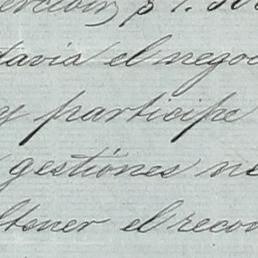 tavia el negoc
y participe
gestiónes ne
btener el recon